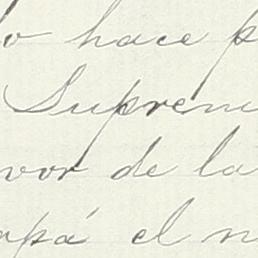 o hace p
Suprem
vor de la
apá el n